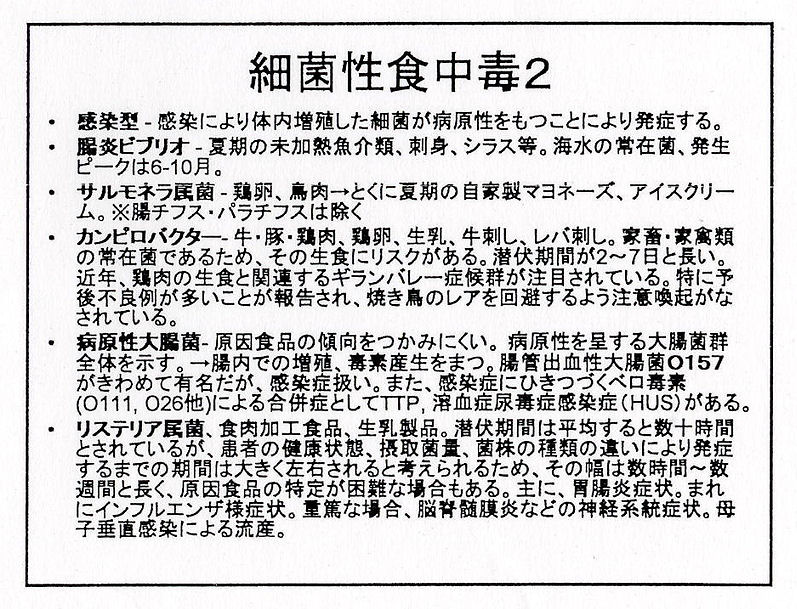 細菌性食中毒2
• 感染型 - 感染により体内増殖した細菌が病原性をもつことにより発症する。
• 腸炎ビブリオ - 夏期の未加熱魚介類、刺身、シラス等。海水の常在菌、発生
ピークは6-10月。
• サルモネラ属菌 - 鶏卵、鳥肉→とくに夏期の自家製マヨネーズ、アイスクリー
ム。※腸チフス・パラチフスは除く
• カンピロバクター- 牛・豚・鶏肉、鶏卵、生乳、牛刺し、レバ刺し。家畜・家禽類
の常在菌であるため、その生食にリスクがある。潜伏期間が2〜7日と長い。
近年、鶏肉の生食と関連するギランバレー症候群が注目されている。特に予
後不良例が多いことが報告され、焼き鳥のレアを回避するよう注意喚起がな
されている。
• 病原性大腸菌- 原因食品の傾向をつかみにくい。 病原性を呈する大腸菌群
全体を示す。→腸内での増殖、毒素産生をまつ。腸管出血性大腸菌O157
がきわめて有名だが、感染症扱い。また、感染症にひきつづくベロ毒素
(O111, O26他)による合併症としてTTP, 溶血症尿毒症感染症(HUS)がある。
• リステリア属菌、食肉加工食品、生乳製品。潜伏期間は平均すると数十時間
とされているが、患者の健康状態、摂取菌量、菌株の種類の違いにより発症
するまでの期間は大きく左右されると考えられるため、その幅は数時間〜数
週間と長く、原因食品の特定が困難な場合もある。主に、胃腸炎症状。まれ
にインフルエンザ様症状。重篤な場合、脳脊髄膜炎などの神経系統症状。母
子垂直感染による流産。